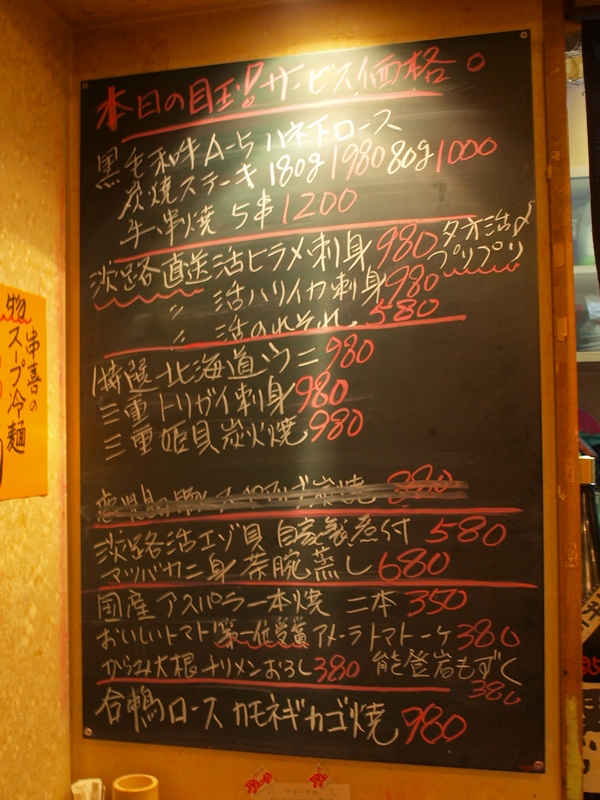 本日の目玉!サービス価格。
黒毛和牛A-5ハネ下ロース
炭焼ステーキ180g1980 80g1000
牛串焼 5串1200
淡路直送活ヒラメ刺身980 夕方活〆
プリプリ
〃 活ハリイカ刺身980
〃 活のれそれ 580
特選北海道ウニ980
三重トリガイ刺身980
三重姫貝炭火焼980
880
淡路活エゾ貝 自家製煮付 580
マツバカニ身茶腕蒸し680
国産アスパラ一本焼 二本350
おいしいトマト第一位受賞アメーラトマト一ケ380
からみ大根チリメンおろし380 能登岩もずく
380
合鴨ロース カモネギカゴ焼980
串喜の
スープ冷麺